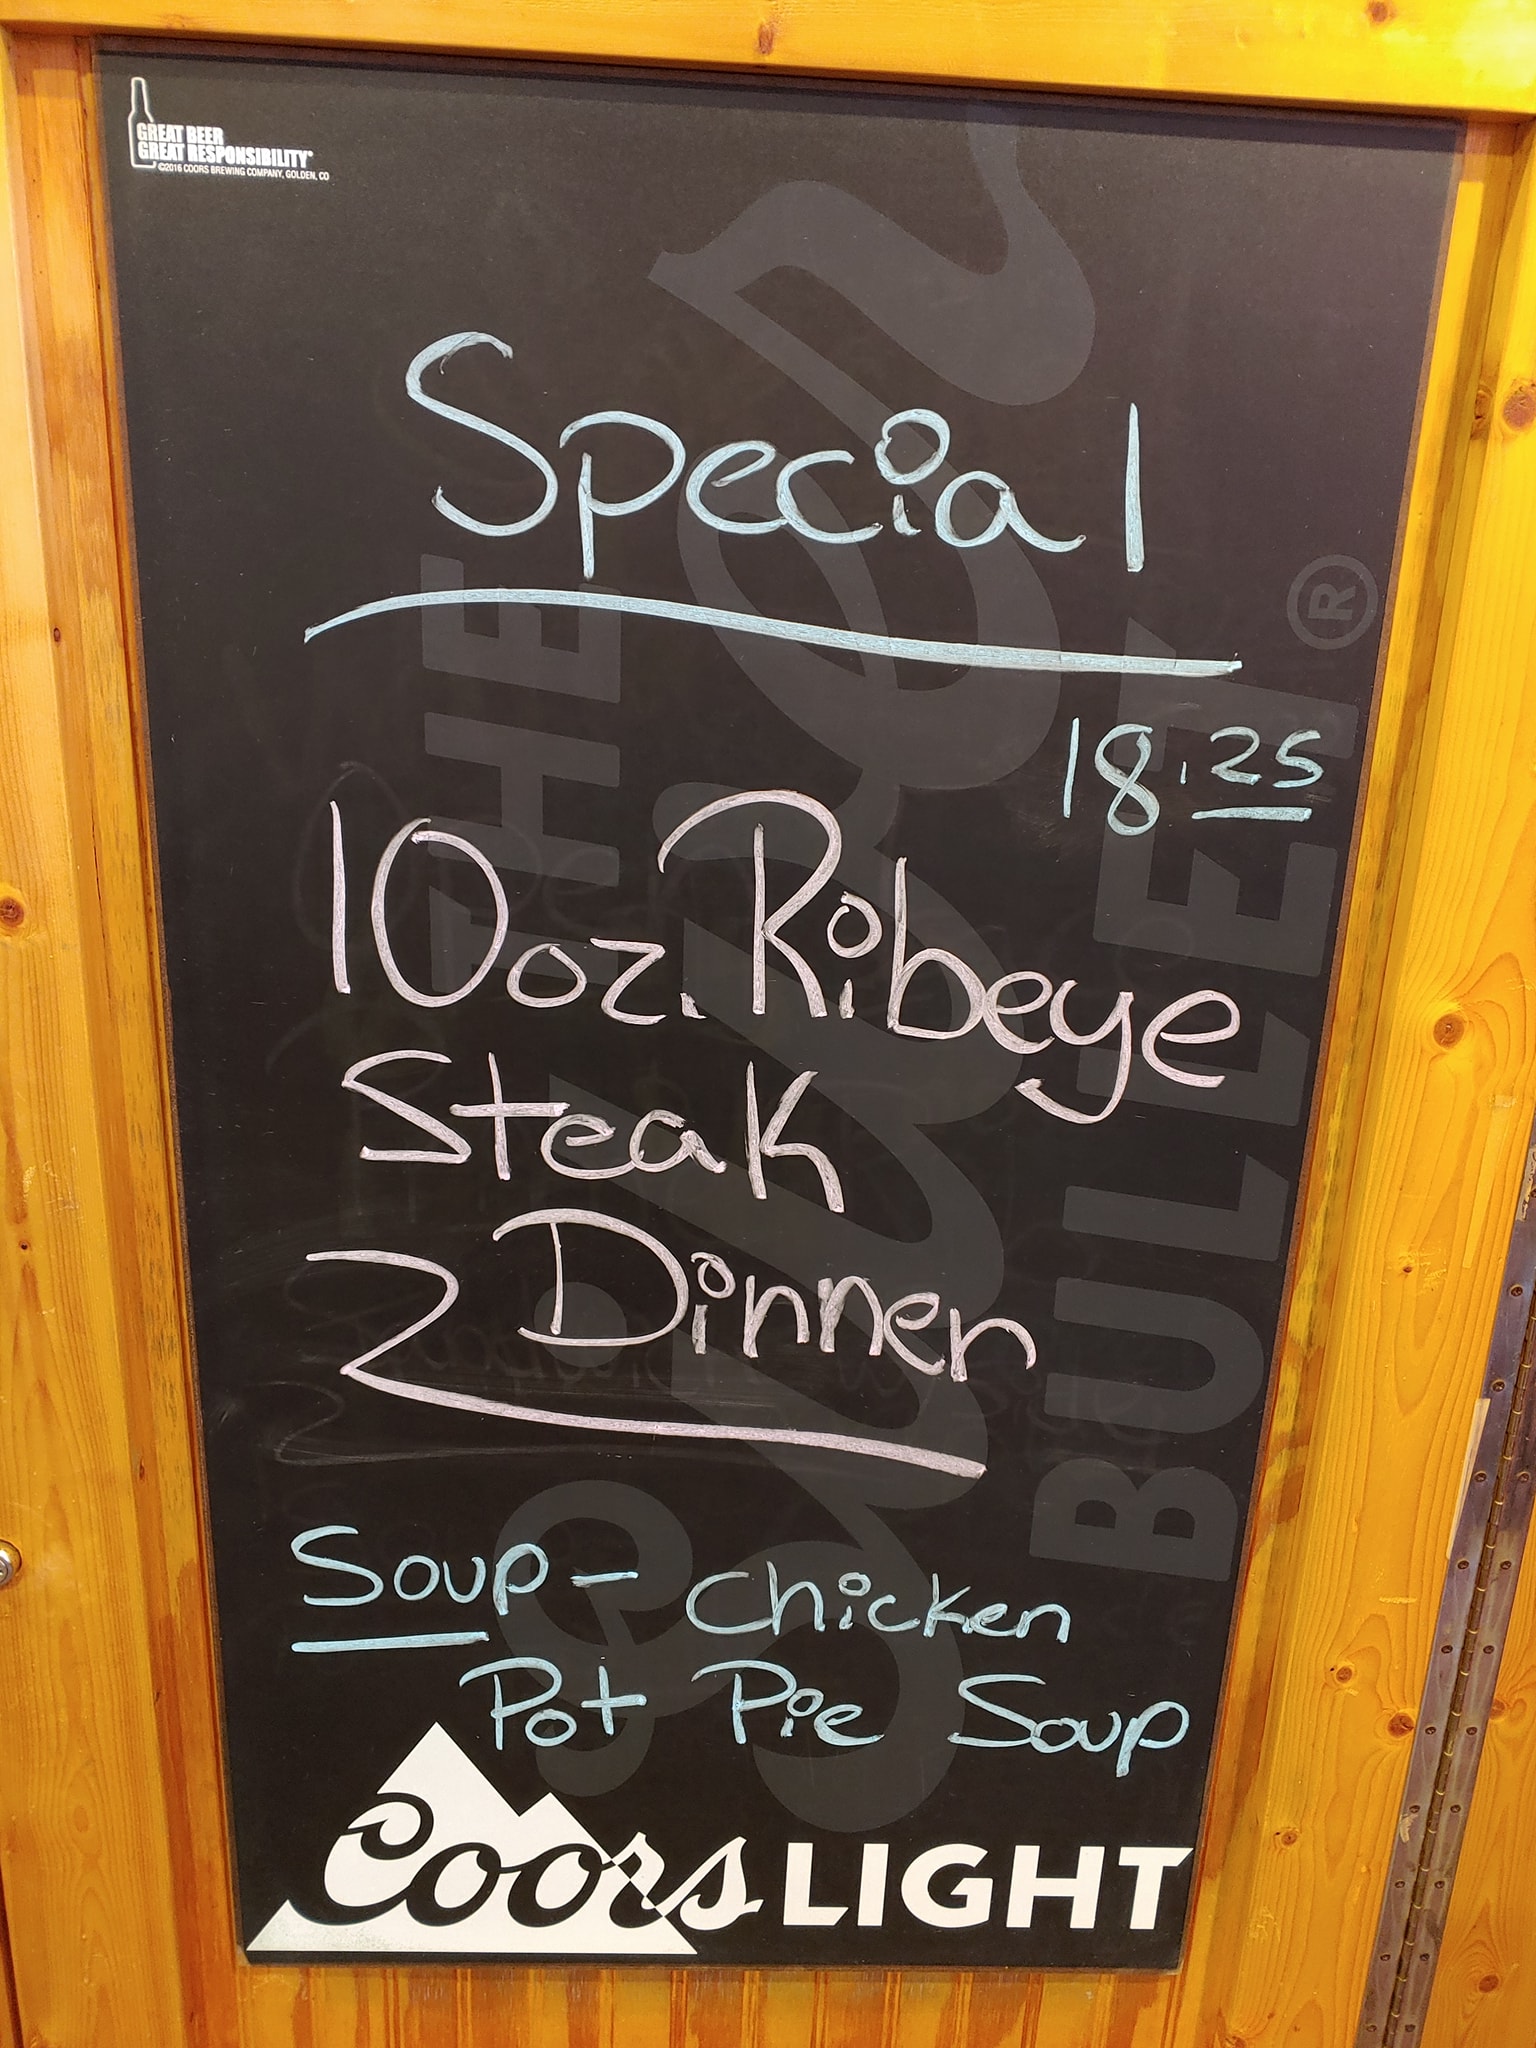 GREAT BEER
GREAT RESPONSIBILITY®
©2016 COORS BREWING COMPANY, GOLDEN, CO
Special
18.25
10oz. Ribeye
Steak
Dinner
Soup - Chicken
Pot Pie Soup
Coors LIGHT
THE
Silver
BULLET®